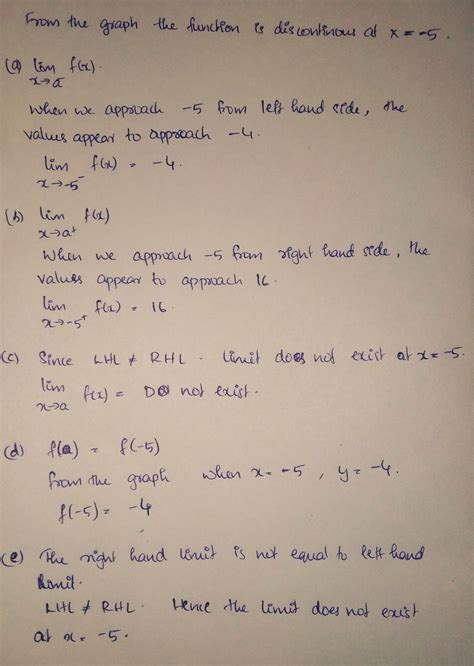 From the graph the function is discontinous at x = -5.
(a) lim f(x).
x→a⁻
When we approach -5 from left hand side, the
values appear to approach -4.
lim f(x) = -4.
x→-5⁻
(b) lim f(x)
x→a⁺
When we approach -5 from right hand side, the
values appear to approach 16.
lim f(x) = 16.
x→-5⁺
(c) Since LHL ≠ RHL. Limit does not exist at x = -5.
lim f(x) = DO not exist.
x→a
(d) f(a) = f(-5)
From the graph when x = -5, y = -4.
f(-5) = -4
(e) The right hand limit is not equal to left hand
limit.
LHL ≠ RHL. Hence the limit does not exist
at x = -5.